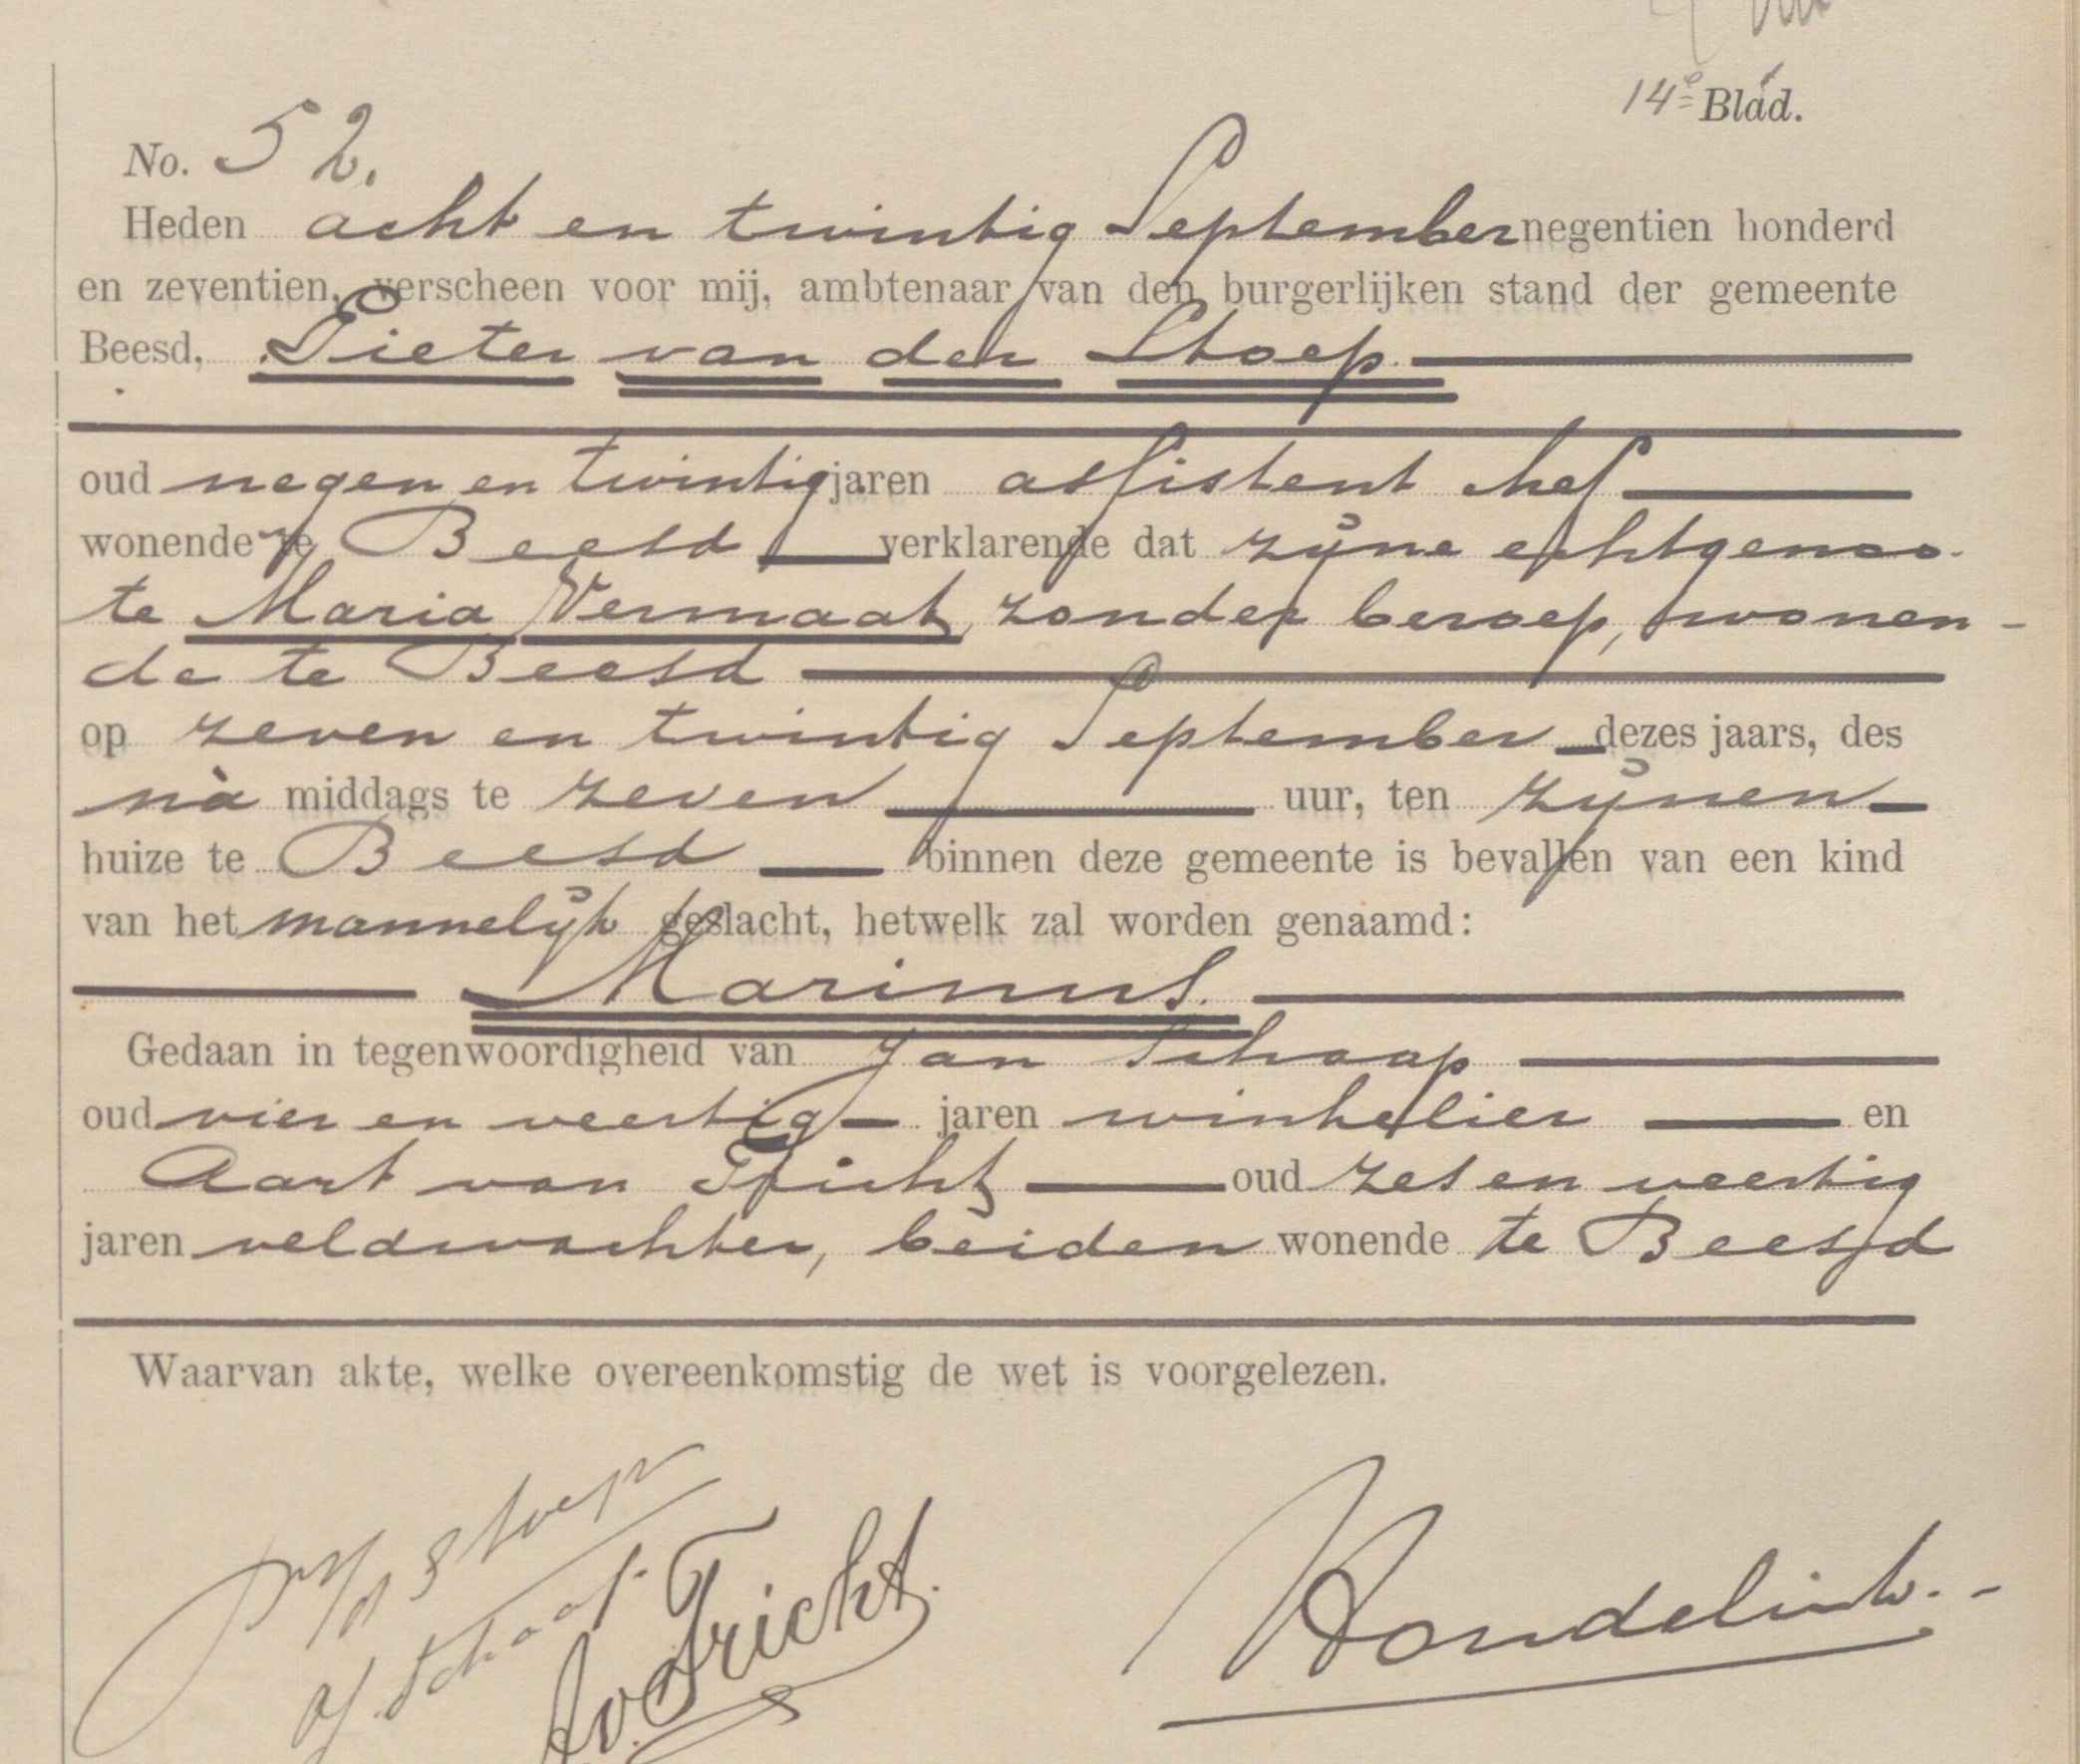 14e Blad.
No. 52.
Heden acht en twintig September negentien honderd
en zeventien, verscheen voor mij, ambtenaar van den burgerlijken stand der gemeente
Beesd, Pieter van der Stoep
oud negen en twintig jaren assistent chef
wonende te Beesd verklarende dat zijne echtgenoo-
te Maria Vermaat, zonder beroep, wonen-
de te Beesd
op zeven en twintig September dezes jaars, des
na middags te zeven uur, ten zijnen
huize te Beesd binnen deze gemeente is bevallen van een kind
van het mannelijk geslacht, hetwelk zal worden genaamd:
Marinus.
Gedaan in tegenwoordigheid van Jan Schaap
oud vier en veertig jaren winkelier en
Aart van Tricht oud zes en veertig
jaren veldwachter, beiden wonende te Beesd
Waarvan akte, welke overeenkomstig de wet is voorgelezen.
P v/d Stoep
J. Schaap.
A v Tricht.
Hondelink.